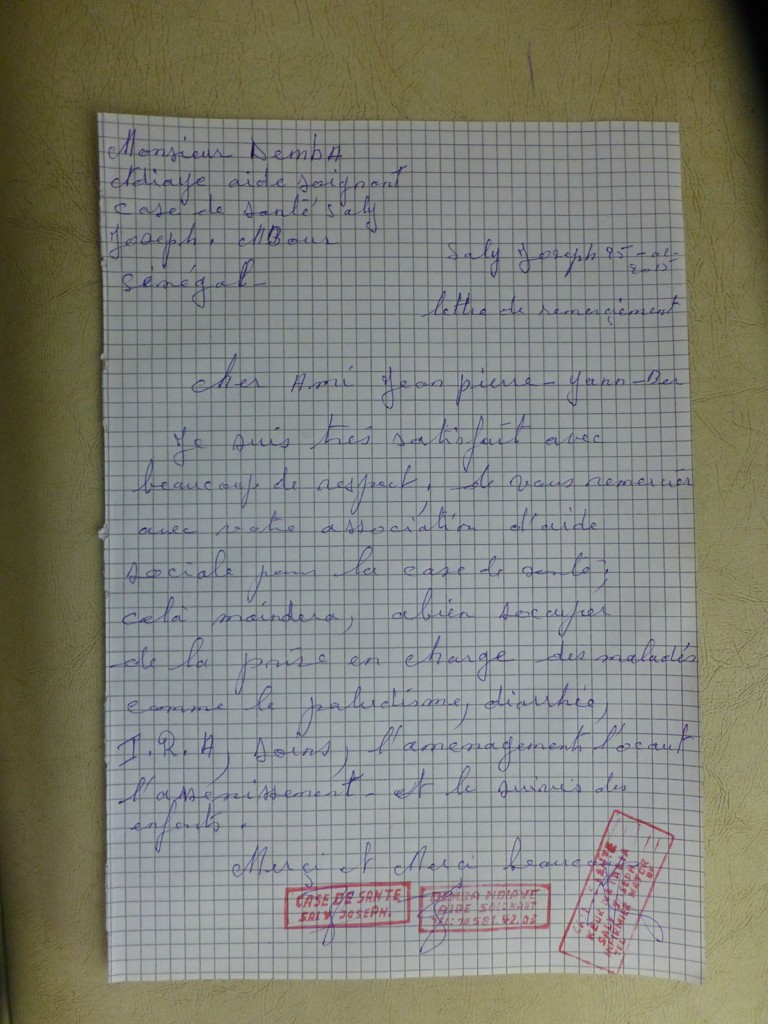 Monsieur DembA
Ndiaye aide soignant
Case de santé Saly
Joseph. MBour
Sénégal-
Saly Joseph 25-02-
2015
lettre de remerciement
Cher Ami Jean pierre-Yann-Ber
Je suis très satisfait avec
beaucoup de respect, de vous remercier
avec votre association d'aide
sociale pour la case de santé;
celà m'aindera, abien soccuper
de la prise en charge des maladés
comme le paludisme, diarrhée,
I.R.A, soins, l'aménagement l'ocaut
l'assénissement- et le suivis des
enfants.
Merci et Merci beaucoup
CASE DE SANTE
SALY JOSEPH.
DEMBA NDIAYE
AIDE SOIGNANT
SALY JOSEPH
INFIRMIER
TEL